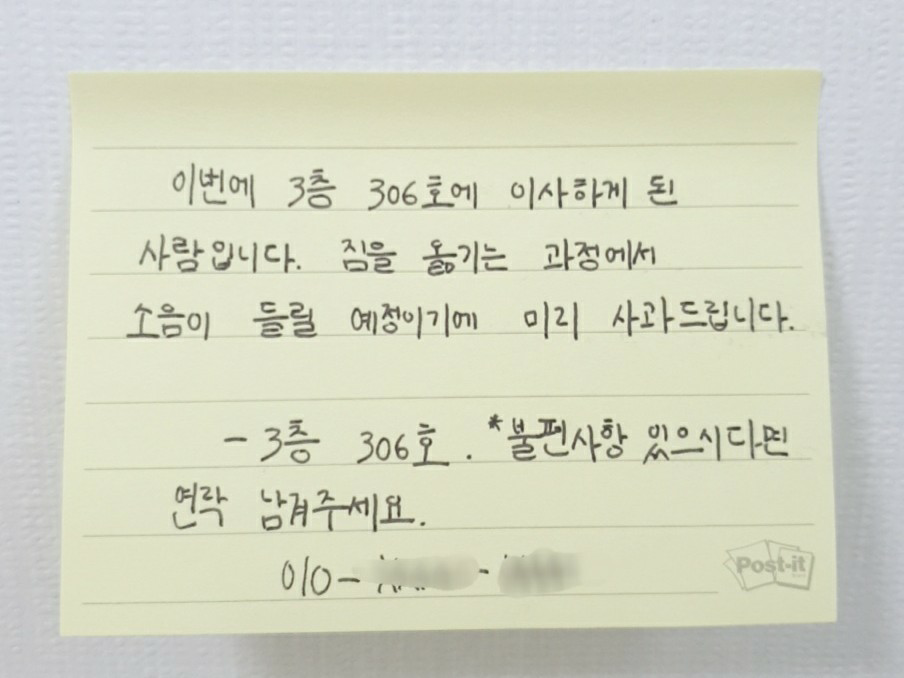 이번에 3층 306호에 이사하게 된
사람입니다. 짐을 옮기는 과정에서
소음이 들릴 예정이기에 미리 사과드립니다.
- 3층 306호. *불편사항 있으시다면
연락 남겨주세요.
010-
Post-it